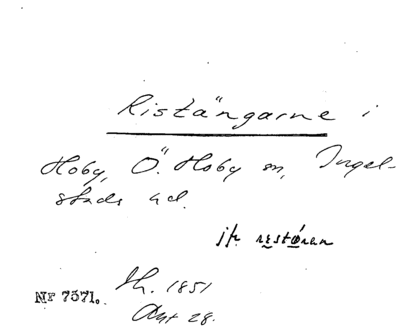 Ristängarne i
Hoby, Ö. Hoby sn, Ingel-
stads hd.
jfr restáran
Nr 7571. Sh. 1851
Akt 28.